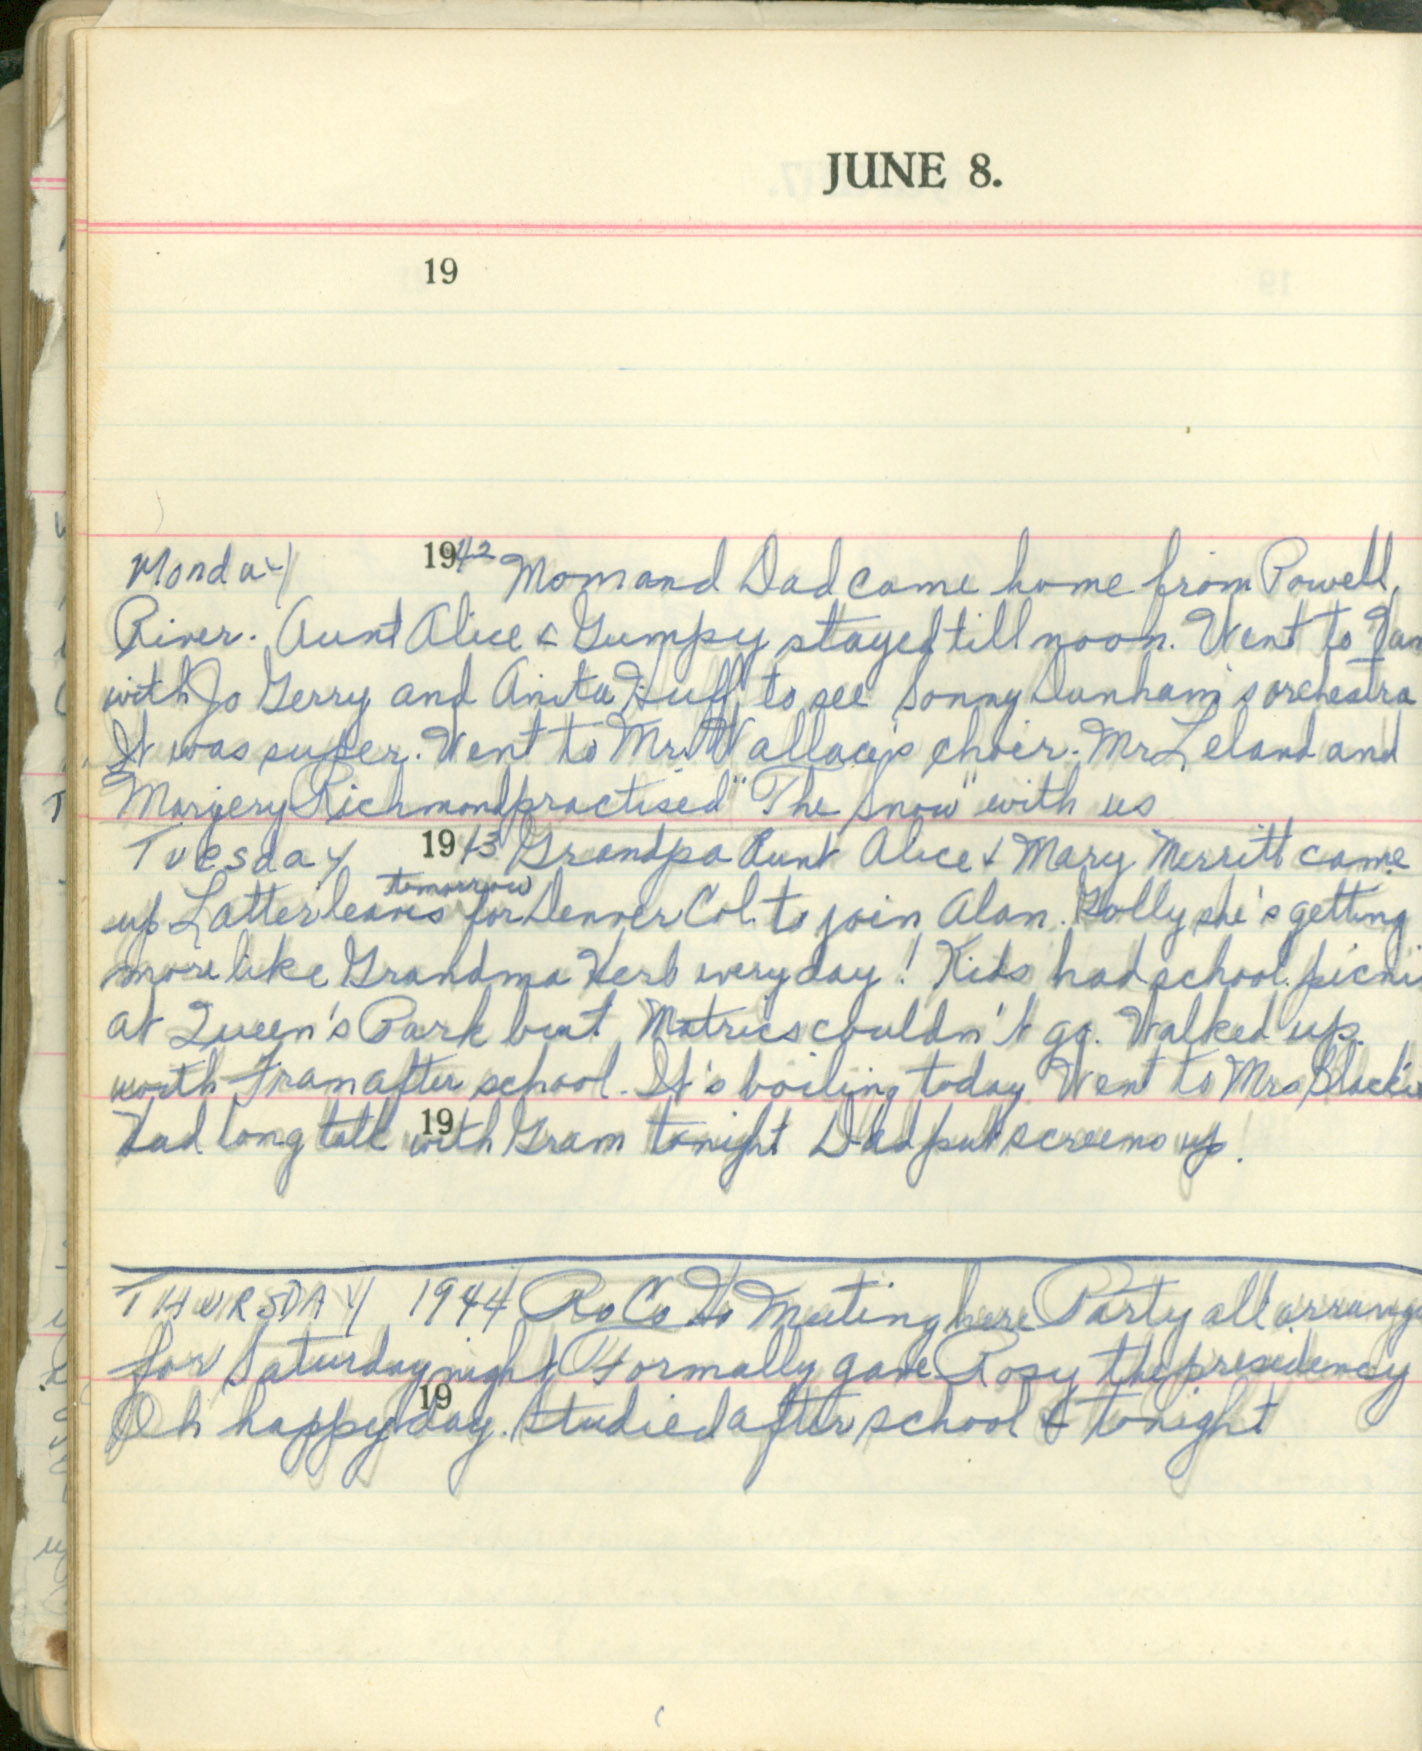 JUNE 8.
19
Monday 1942 Mom and Dad came home from Powell
River. Aunt Alice & Gumpy stayed till noon. Went to Van
with Jo Gerry and Anita Huff to see Sonny Dunham's orchestra
It was super. Went to Mr. Wallace's choir. Mr Leland and
Margery Richmond practised "The Snow" with us
Tuesday 1943 Grandpa Aunt Alice & Mary Merritt came
tomorrow
up Latter leaves for Denver Col. to join Alan. Golly she's getting
more like Grandma Kerb everyday! Kids had school picni
at Queen's Park but Matrics couldn't go. Walked up
with Fram after school. It's boiling today Went to Mrs Blackie
19
Had long talk with Gram tonight Dad put screens up.
THURSDAY 1944 Ro Co Ho Meeting here Party all arrange
for Saturday night Formally gave Rosy the presidency
19
Oh happy day. Studied after school & tonight